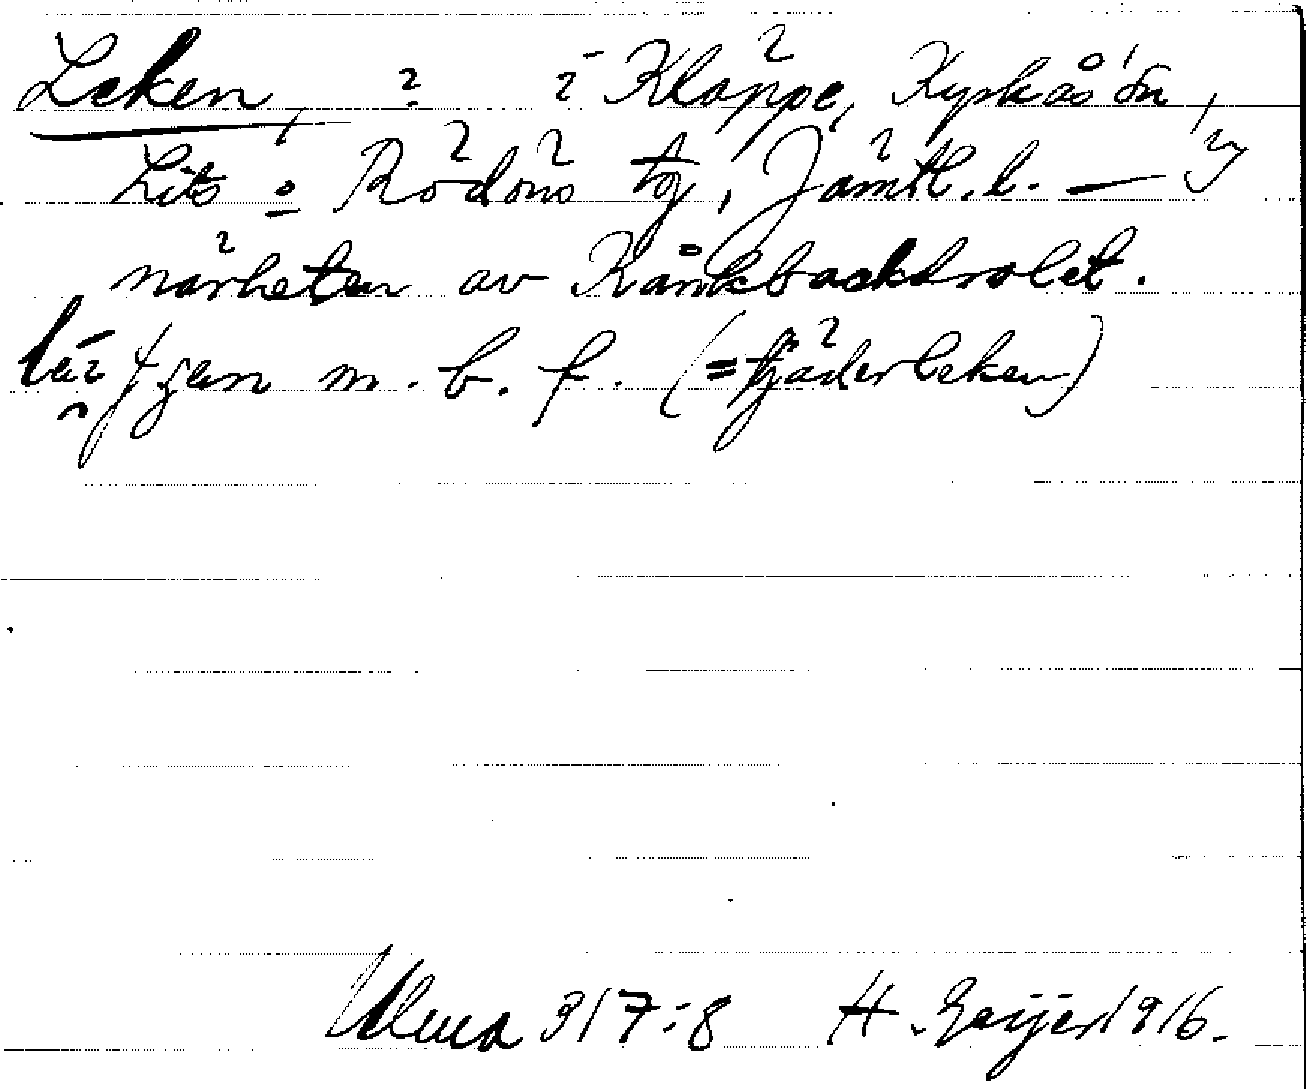 Leken, ? i Kläppe, Kyrkås sn,
Lits o Rödöns tg, Jämtl. l. — i
närheten av Rånkbacksrolet.
m. b. f. (= tjäderleken)
Ulma 317:8 H. Geijer 1916.